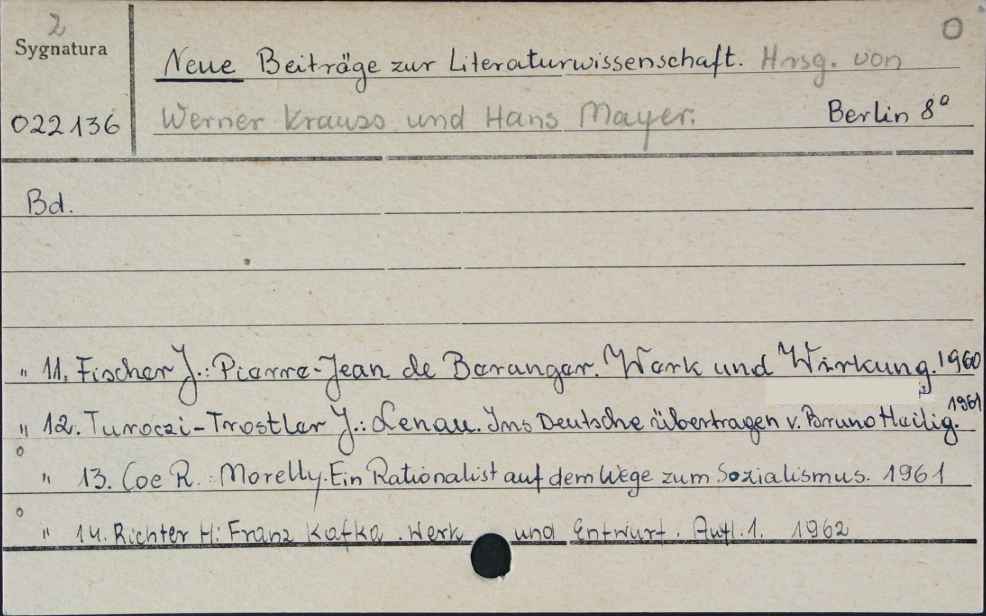 2
O
Sygnatura
Neue Beiträge zur Literaturwissenschaft. Hrsg. von
022136
Werner Krauss und Hans Mayer.
Berlin 8°
Bd.
" 11. Fischer J.: Pierre-Jean de Beranger. Werk und Wirkung. 1960
" 12. Turoczi-Trostler J.: Lenau. Ins Deutsche übertragen v. Bruno Heilig. 1961
o
" 13. Coe R.: Morelly. Ein Rationalist auf dem Wege zum Sozialismus. 1961
o
" 14. Richter H: Franz Kafka. Werk und Entwurf. Aufl. 1. 1962